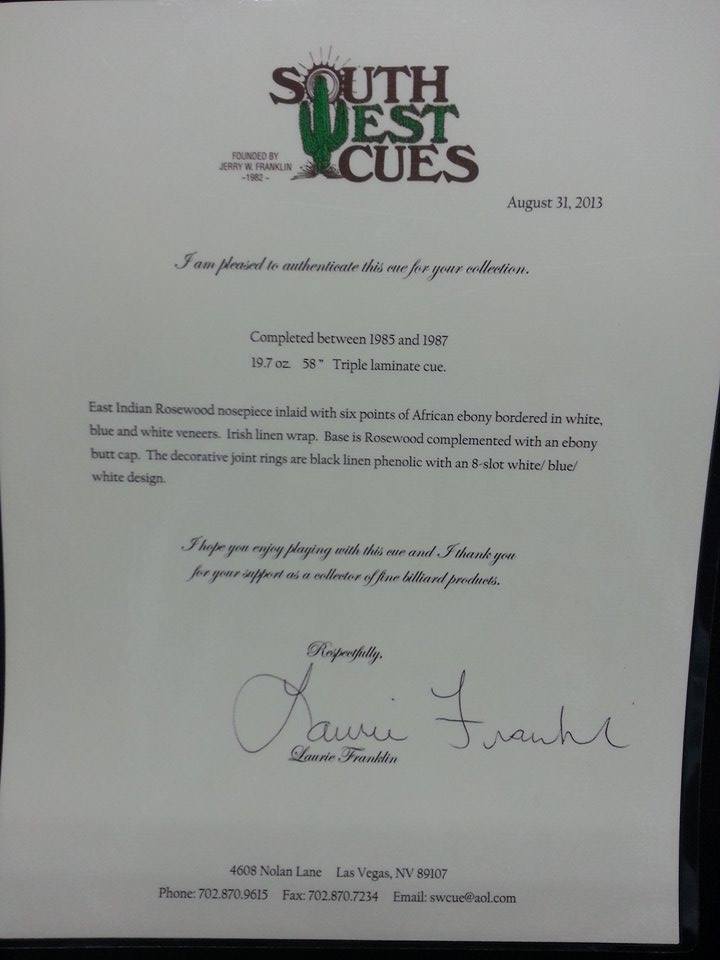 SOUTH
WEST
CUES
FOUNDED BY
JERRY W. FRANKLIN
~1982~
August 31, 2013
I am pleased to authenticate this cue for your collection.
Completed between 1985 and 1987
19.7 oz. 58" Triple laminate cue.
East Indian Rosewood nosepiece inlaid with six points of African ebony bordered in white,
blue and white veneers. Irish linen wrap. Base is Rosewood complemented with an ebony
butt cap. The decorative joint rings are black linen phenolic with an 8-slot white/ blue/
white design.
I hope you enjoy playing with this cue and I thank you
for your support as a collector of fine billiard products.
Respectfully,
Laurie Franklin
Laurie Franklin
4608 Nolan Lane Las Vegas, NV 89107
Phone: 702.870.9615 Fax: 702.870.7234 Email: swcue@aol.com